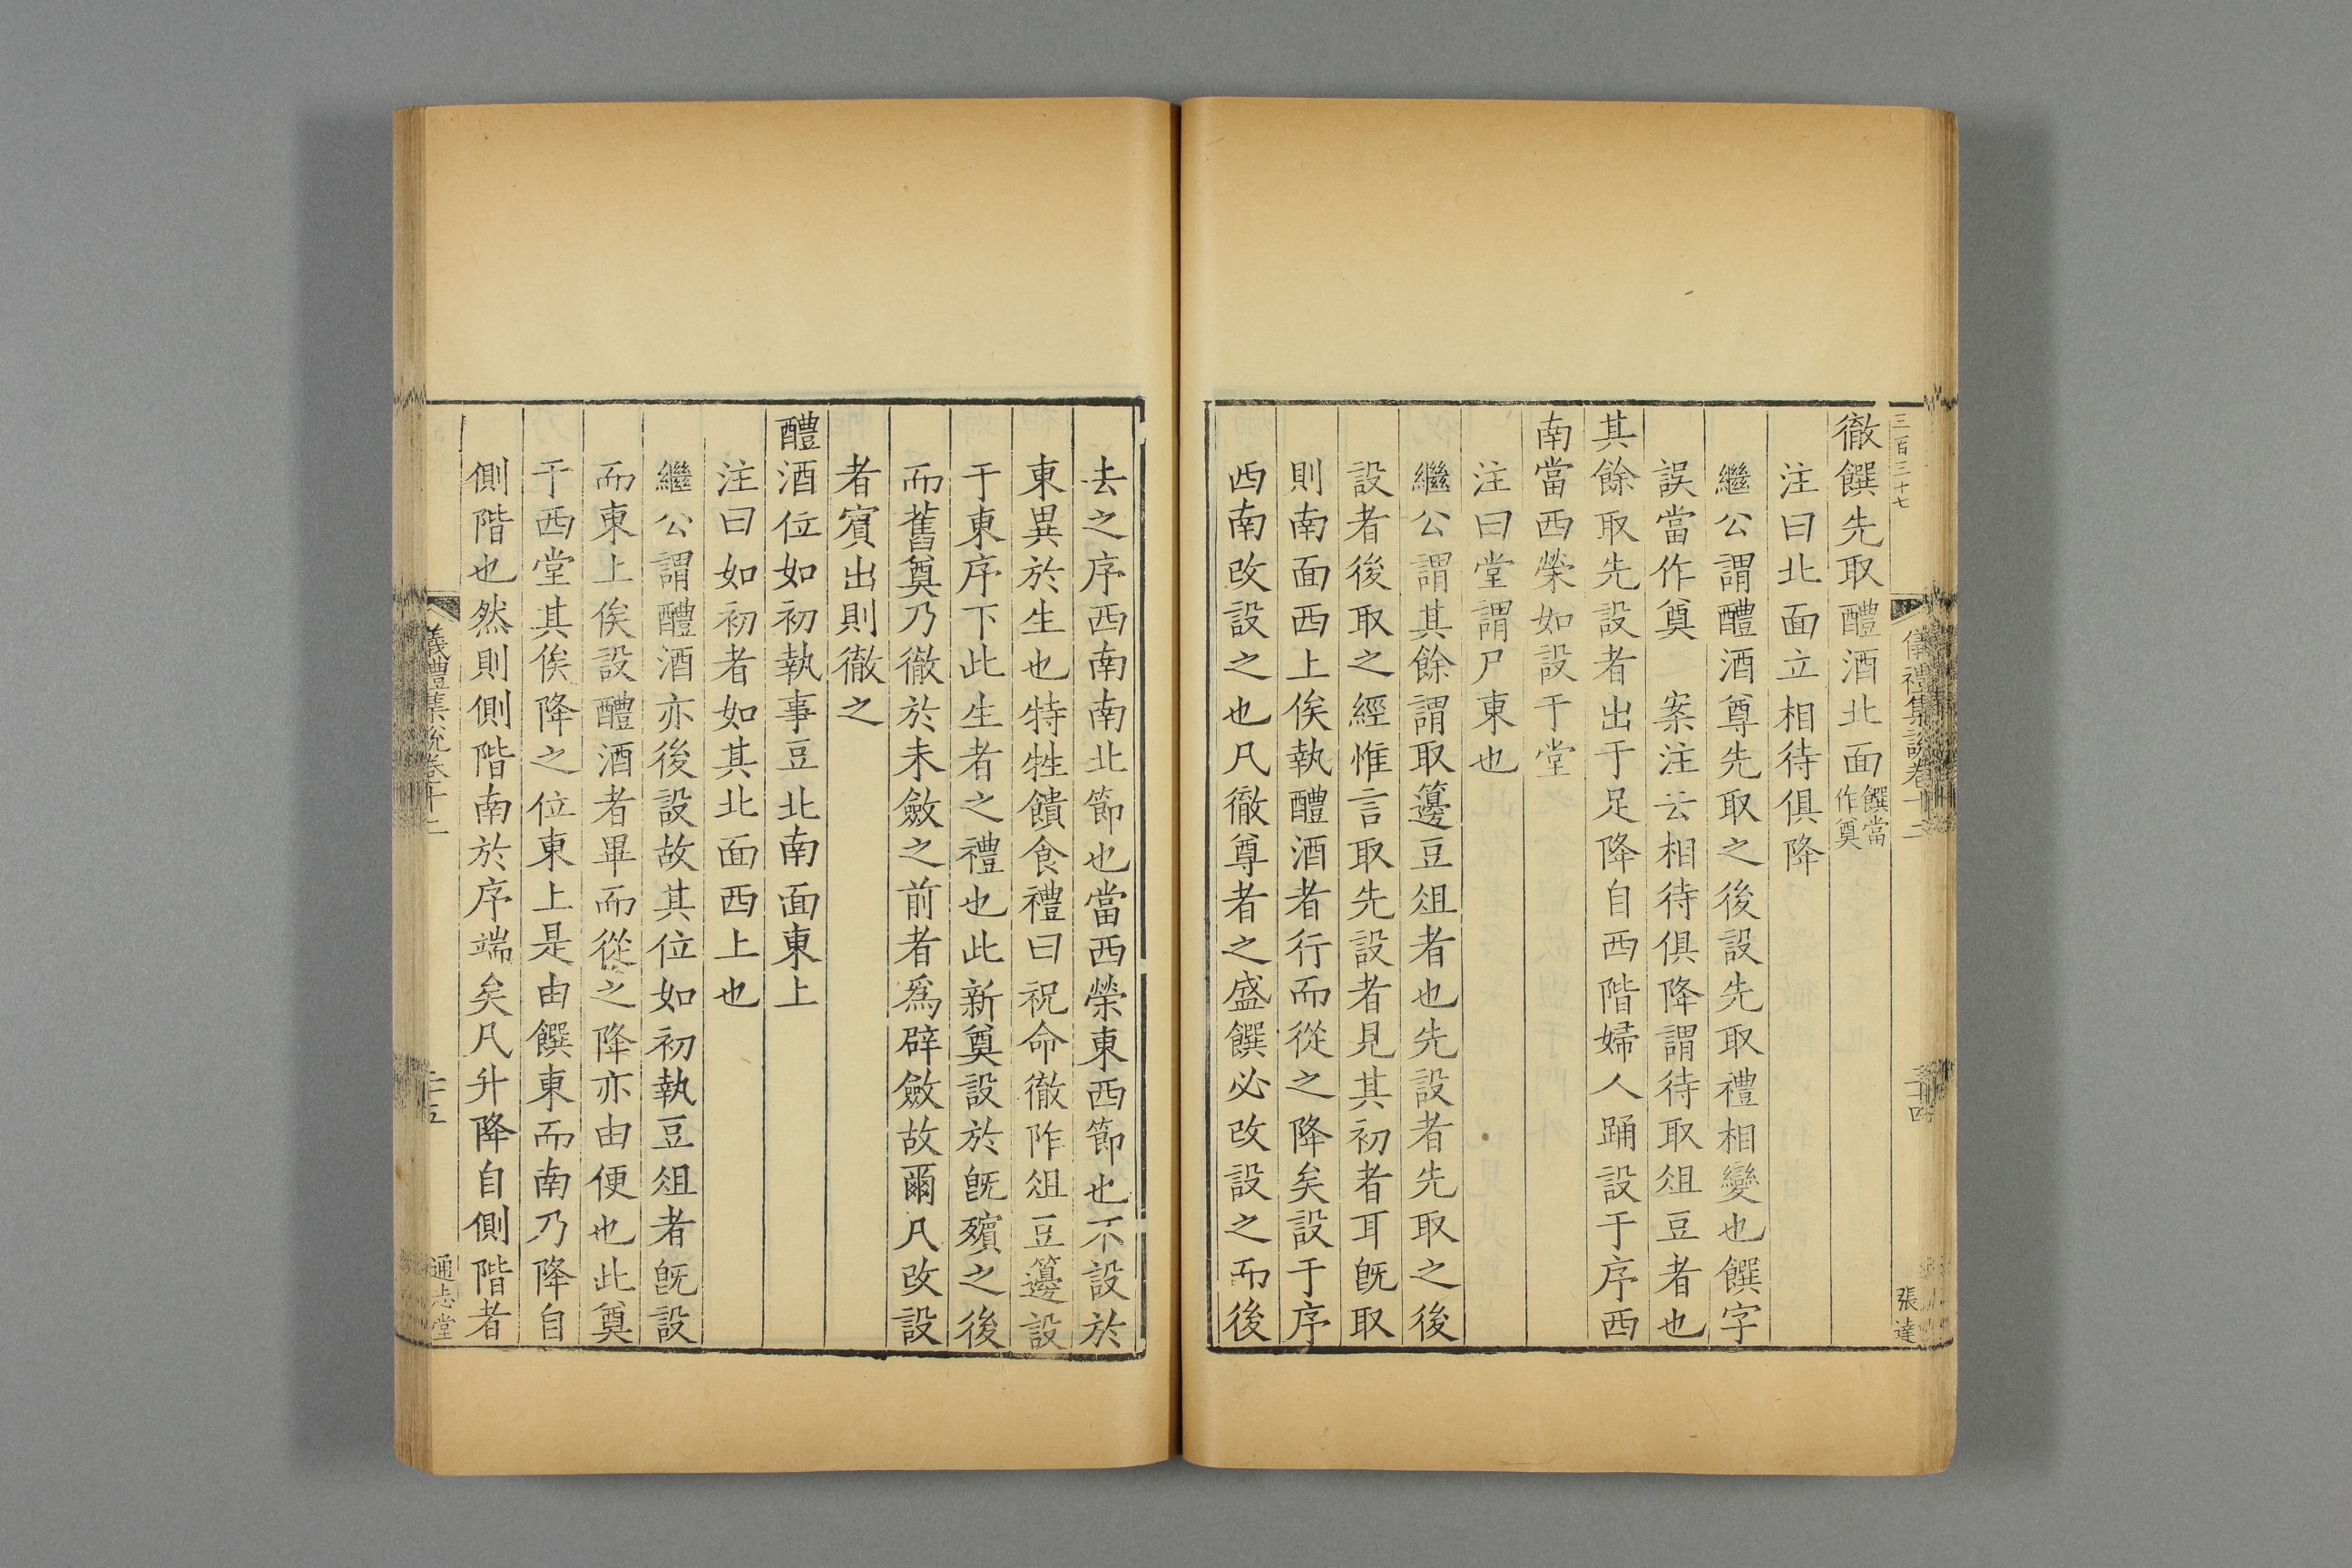 三百三十七
儀禮集說卷十二
張達
徹饌先取醴酒北面饌當作奠
注曰北面立相待俱降
繼公謂醴酒尊先取之後設先取禮相變也饌字
誤當作奠　案注云相待俱降謂待取俎豆者也
其餘取先設者出于足降自西階婦人踊設于序西
南當西榮如設于堂
注曰堂謂尸東也
繼公謂其餘謂取籩豆俎者也先設者先取之後
設者後取之經惟言取先設者見其初者耳旣取
則南面西上俟執醴酒者行而從之降矣設于序
西南改設之也凡徹尊者之盛饌必改設之而後
去之序西南南北節也當西榮東西節也不設於
東異於生也特牲饋食禮曰祝命徹阼俎豆籩設
于東序下此生者之禮也此新奠設於旣殯之後
而舊奠乃徹於未斂之前者爲辟斂故爾凡改設
者賓出則徹之
醴酒位如初執事豆北南面東上
注曰如初者如其北面西上也
繼公謂醴酒亦後設故其位如初執豆俎者旣設
而東上俟設醴酒者畢而從之降亦由便也此奠
于西堂其俟降之位東上是由饌東而南乃降自
側階也然則側階南於序端矣凡升降自側階者
儀禮集說卷十二
二十五
通志堂